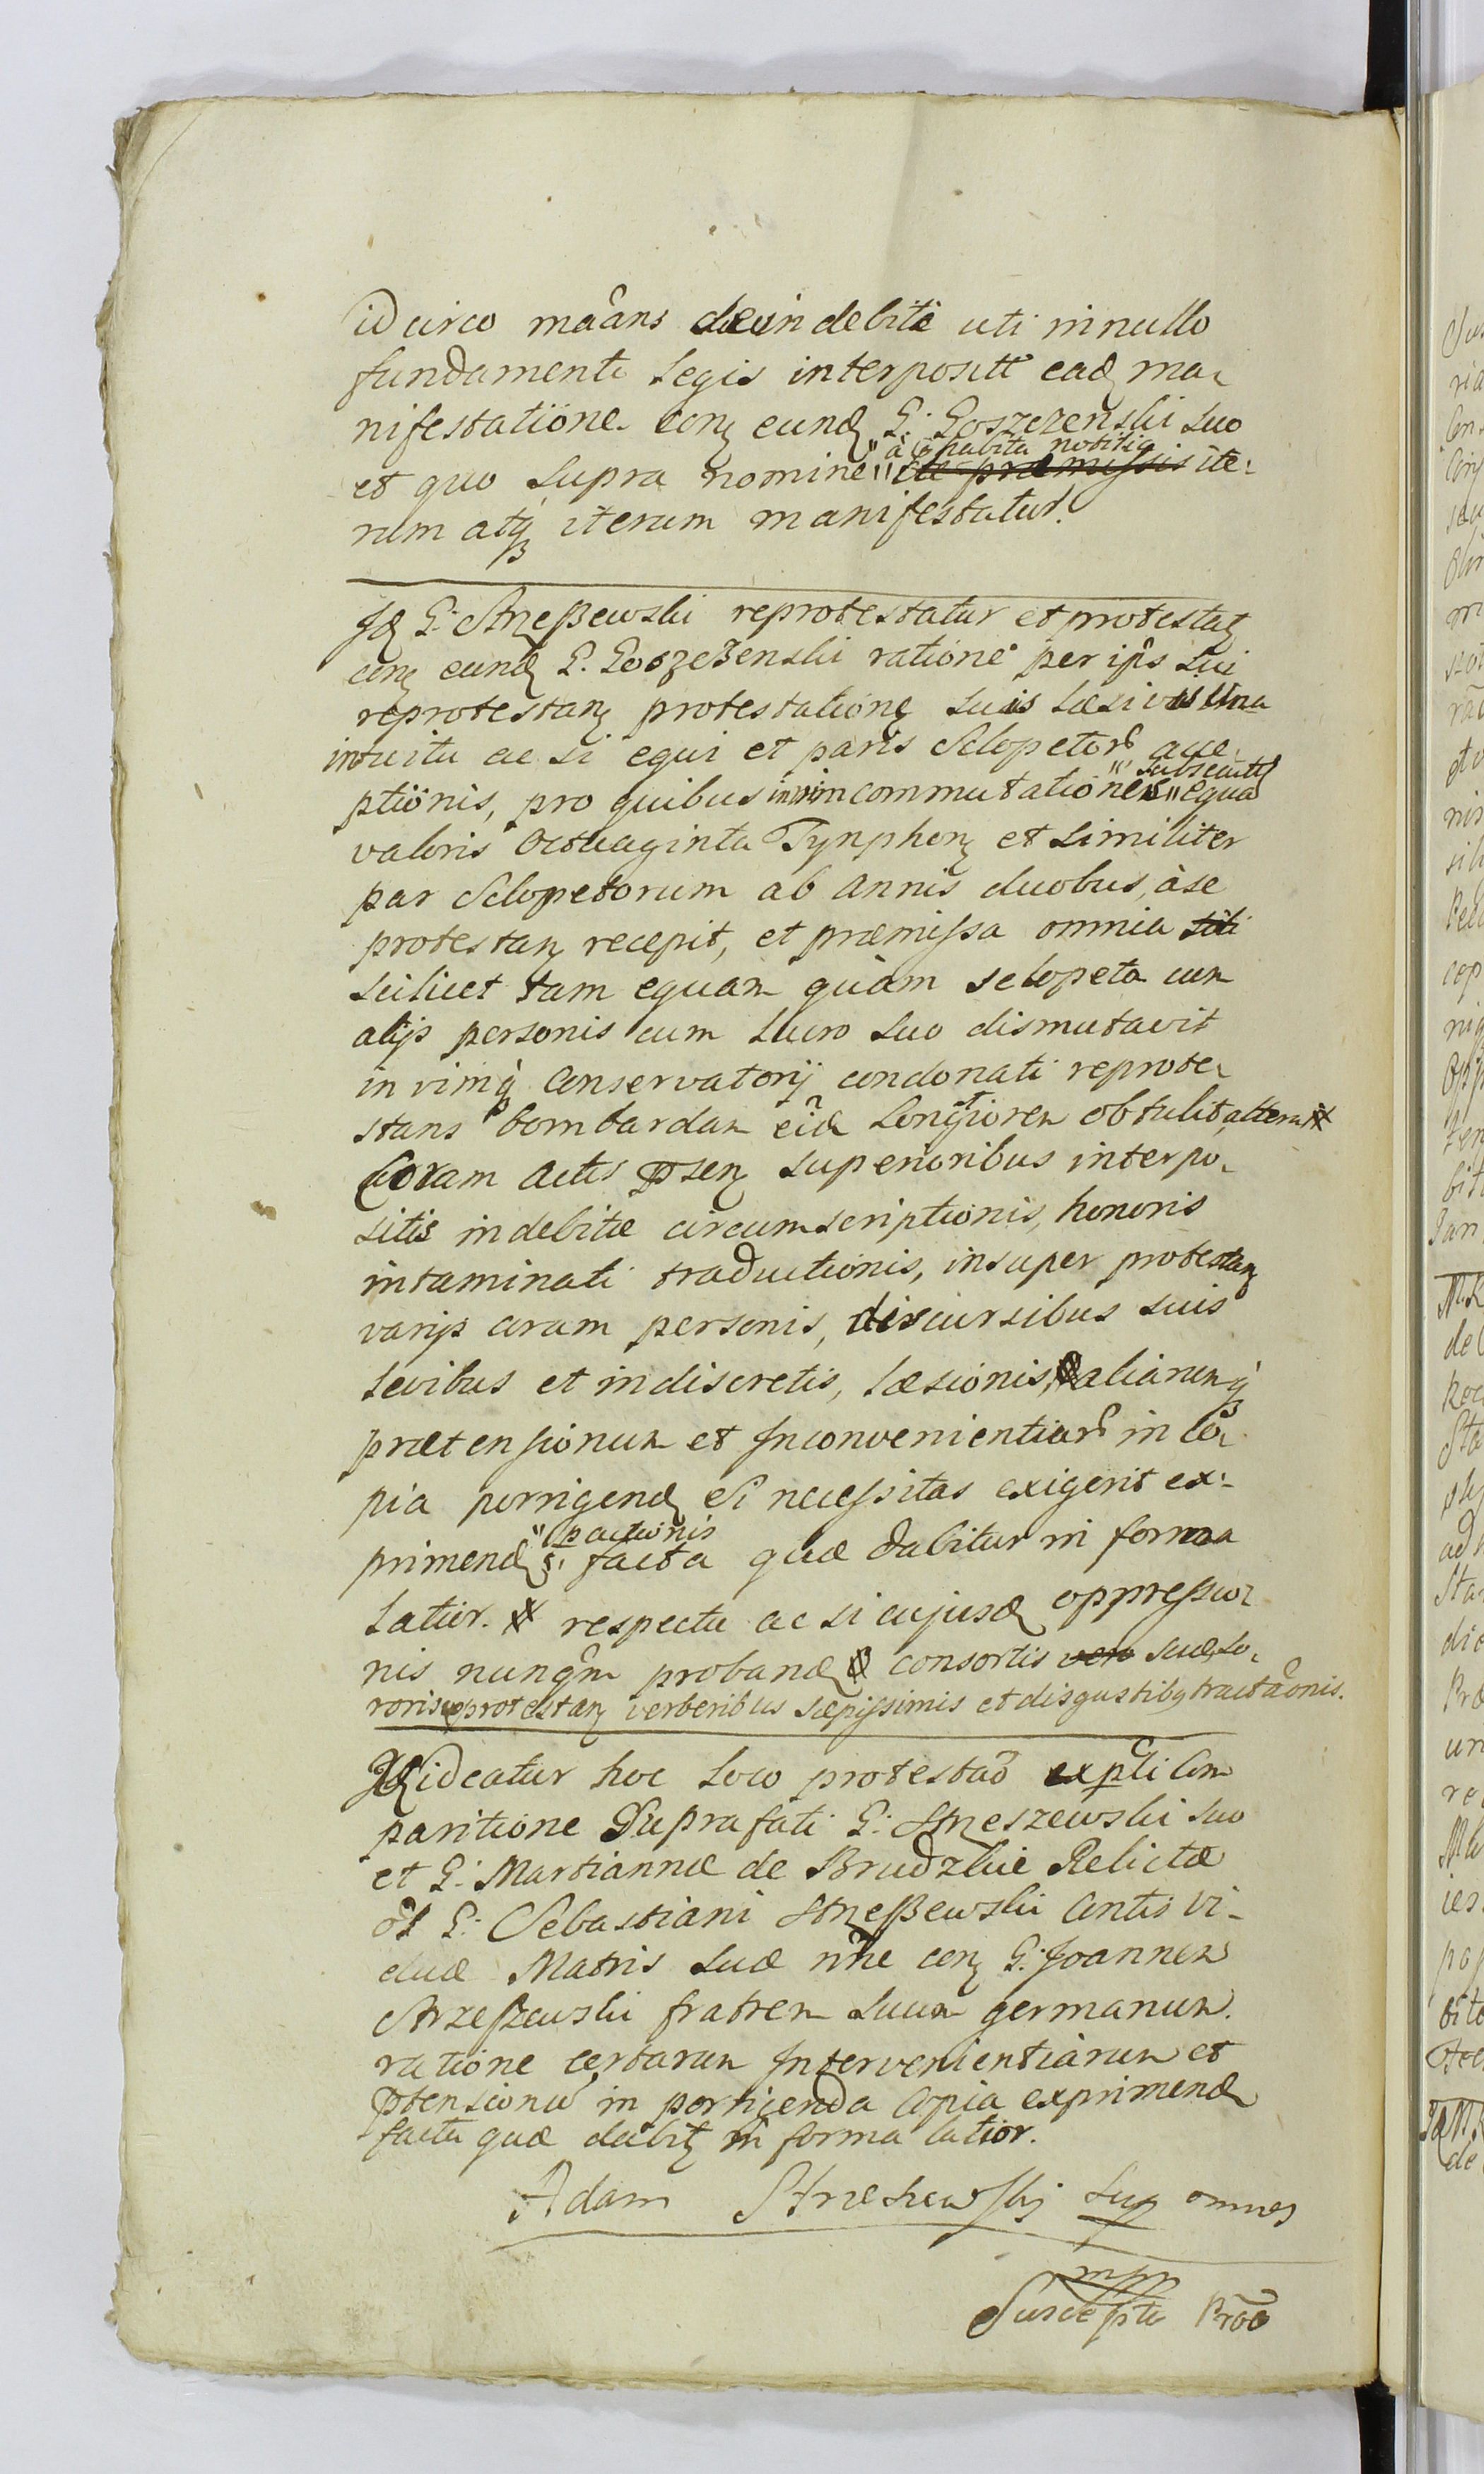 idcirco mãans de indebitè uti in nullo
fundamento Legis interposītt eadꝫ ma-
nifestatione conꝫ eundꝫ G: Goszczenski suo
"à ꝫ habita notitia
et quo supra nomine " de præmissis ite:
rum atqꝫ iterum manifestatur.
Idꝫ G: Strzeßewski reprotestatur et protestatꝫ
conꝫ eundꝫ G. Goszczenski ratione per ip̃s sui
reprotestanꝫ protestationꝫ suis læsivas una
intuitu ac si equi et paris Sclopetor̃ acce-
"subsecuta
ptionis, pro quibus in vim commutationis " equa
valoris Octuaginta Tynphonꝫ et similiter
par Sclopetorum ab annis duobus, à se
protestanꝫ recepit, et præmissa omnia sibi
scilicet tam equam quàm sclopeta cum
alijs personis cum lucro suo dismutavit
in vimqꝫ conservatorij condonati reprote-
stans bombardam eid̃ Longiorem obtulit, alterum
Coram actis p̃senꝫ superioribus interpo-
sitis indebitæ circumscriptionis, honoris
intaminati traductionis, insuper protestanꝫ
varijs coram personis, discursibus suis
levibus et indiscretis, læsionis, aliarumqꝫ
prætensionum et Inconvenientiar̃ in co-
pia porrigendꝫ si necessitas exigerit ex:
"pactionis
primendꝫ " facta quæ dabitur in forma
Latior. respectu ac si cujusdꝫ oppressio-
nis nunqm̃ probandꝫ consortis vero suæ so-
roris protestanꝫ verberibus sæpissimis et disgustibꝫ tractãonis.
Videatur hoc loco protestaõ exp̃ti com
paritione Suprafati G: Strzeszewski suo
et G: Martiannæ de Brudzkie Relictæ
õl G: Sebastiani Strzeßewski Contis vi-
duæ Matris suæ nñe conꝫ G: Joannem
Strzeßewski fratrem suum germanum.
ratione certarum Intervenientiarum et
p̃tensionũ in porrigenda copia exprimendꝫ
facta quæ dabitꝫ in forma latior.
Adam Strzeszewskj sup omnes
mpp
Suscepta Prõo